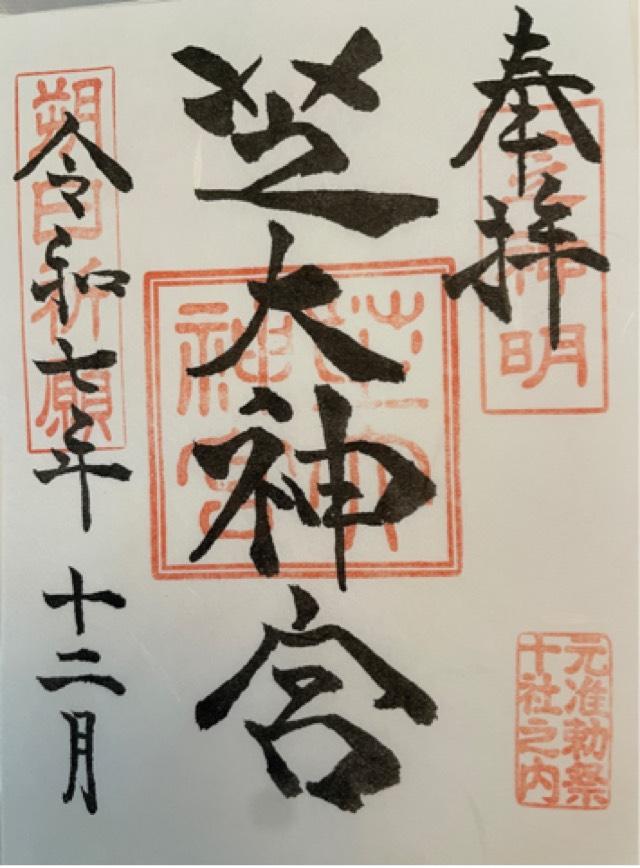 奉拝
芝大神宮
令和七年 十二月
芝大神宮
朔日祈願
元准勅祭
十社之内